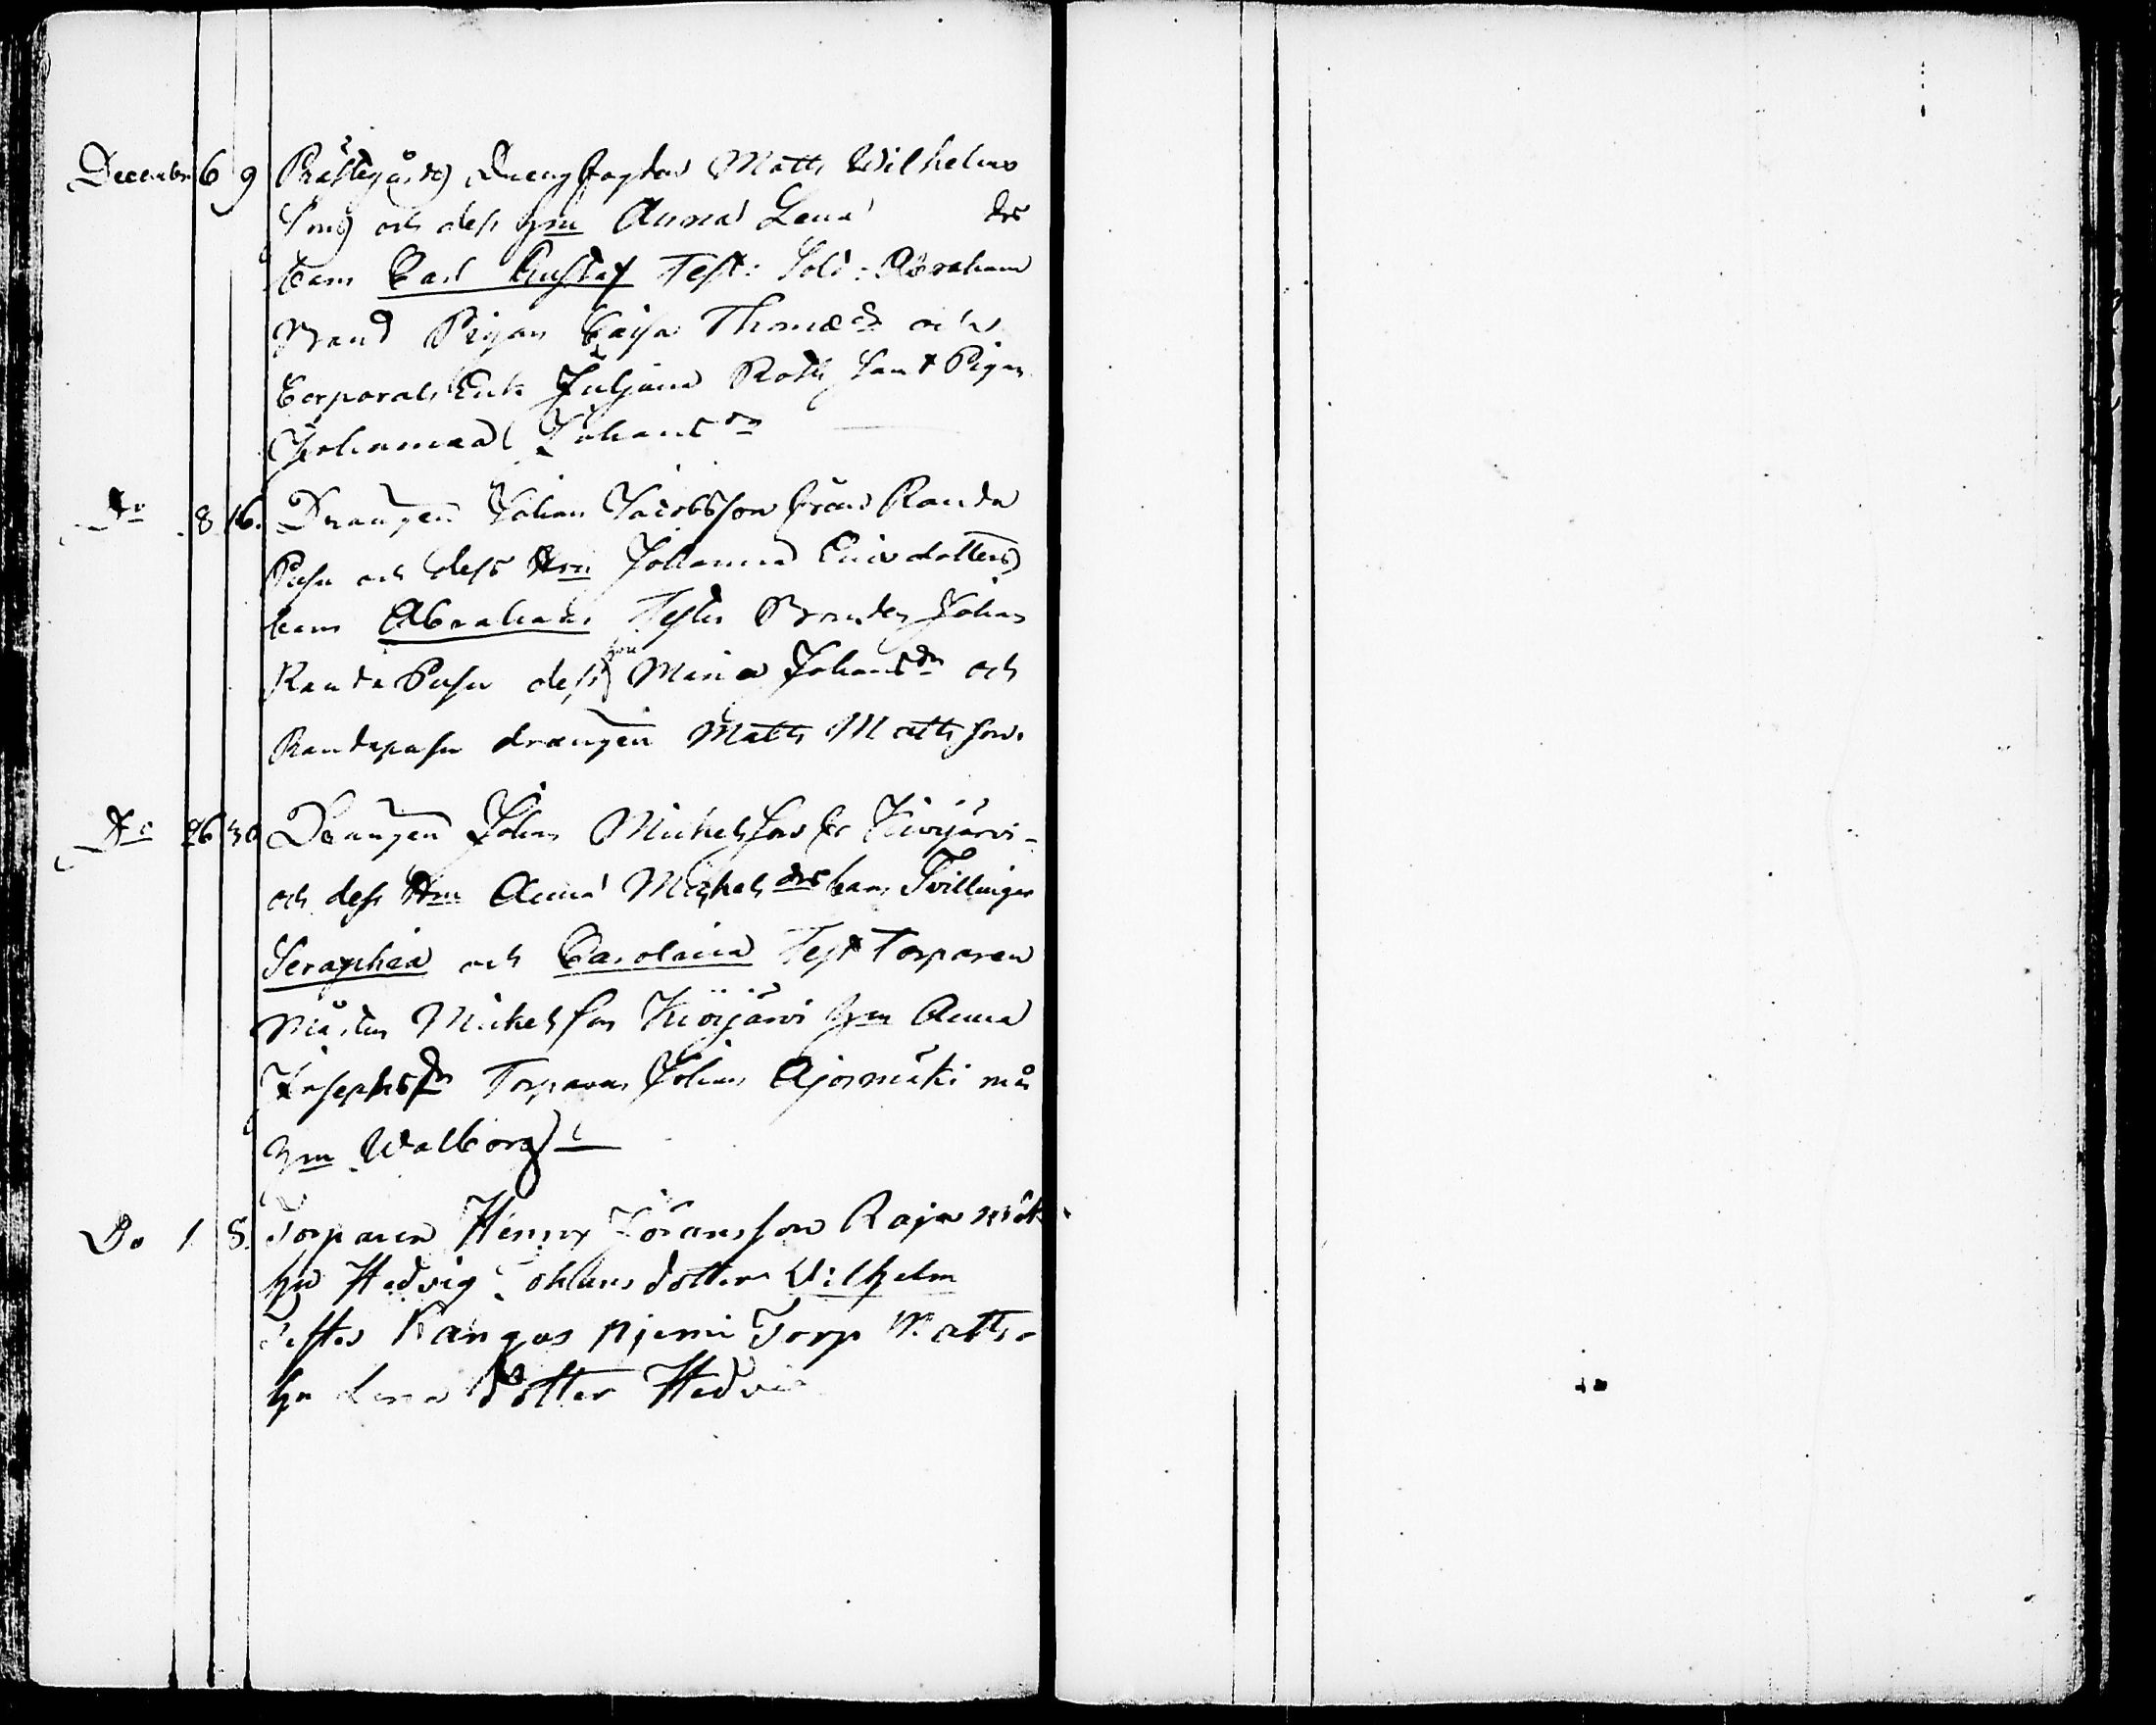 December 6 9 Prästegårds Drengfogden Matts Wilhelms
Son och dess Hu Anna Lena drs
barn Carl Gustaf Test: Sold: Abraham
Brand Pigan Cajsa Thomædr och
Corporals Enk Juljana Roth samt Pigan
Johanna Johansdr
Do 8 16. Drängen Johan Jacobsson från Randa
Pusu och dess Hu Johanna Ericsdotters
barn Abraham Testes Bonden Johan
RandaPusu dess hu Maria Johansdr och
Randapusu drängen Matts Mattsson
Do 26 30 Drängen Johan Michelsson fr Kivijärvi
och dess Hu Anna Michelsdrs barn Tvillingar
Seraphia och Carolina Test Torparen
Mårten Michelsson Kivijärvi Hu Anna
Josephsdr Torparen Johan Ajosmäki
Hu Walborg
Do 1 8. Torparen Henrx Jöransson Rajamäki
hu Hedvig Johansdotter Vilhelm
Testes Kangas njemi Torp Matts
hu Lena dotter Hedvi